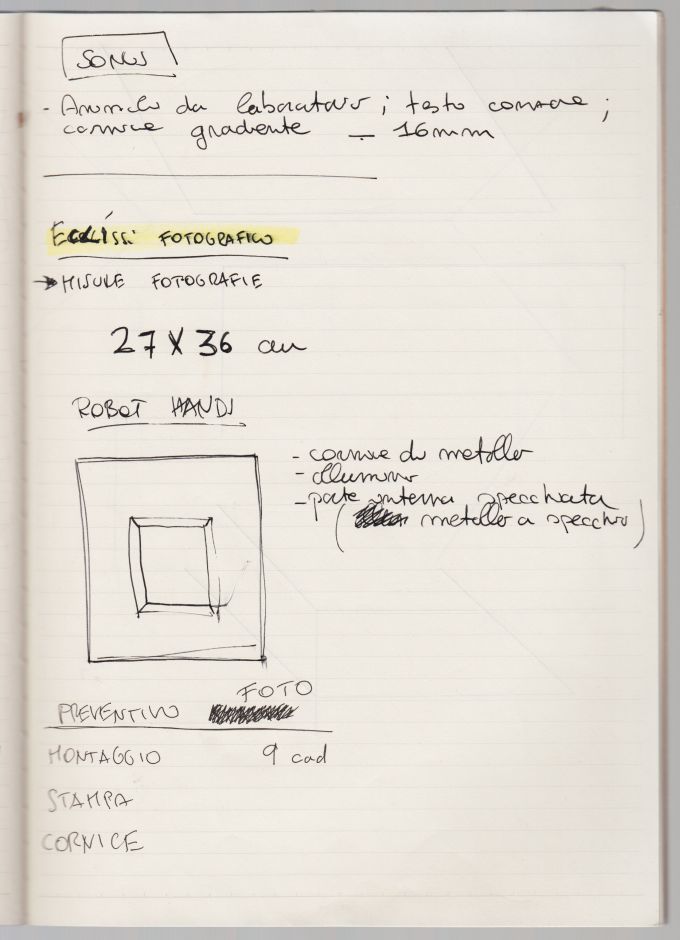 SONUS
- da laboratorio ; testo cornice ;
cornice gradiente - 16mm
Eclissi FOTOGRAFICO
→ MISURE FOTOGRAFIE
27 X 36 cm
ROBOT HANDS
- cornice di metallo
- alluminio
- parte interna specchiata
( metallo a specchio )
FOTO
PREVENTIVO
MONTAGGIO 9 cad
STAMPA
CORNICE